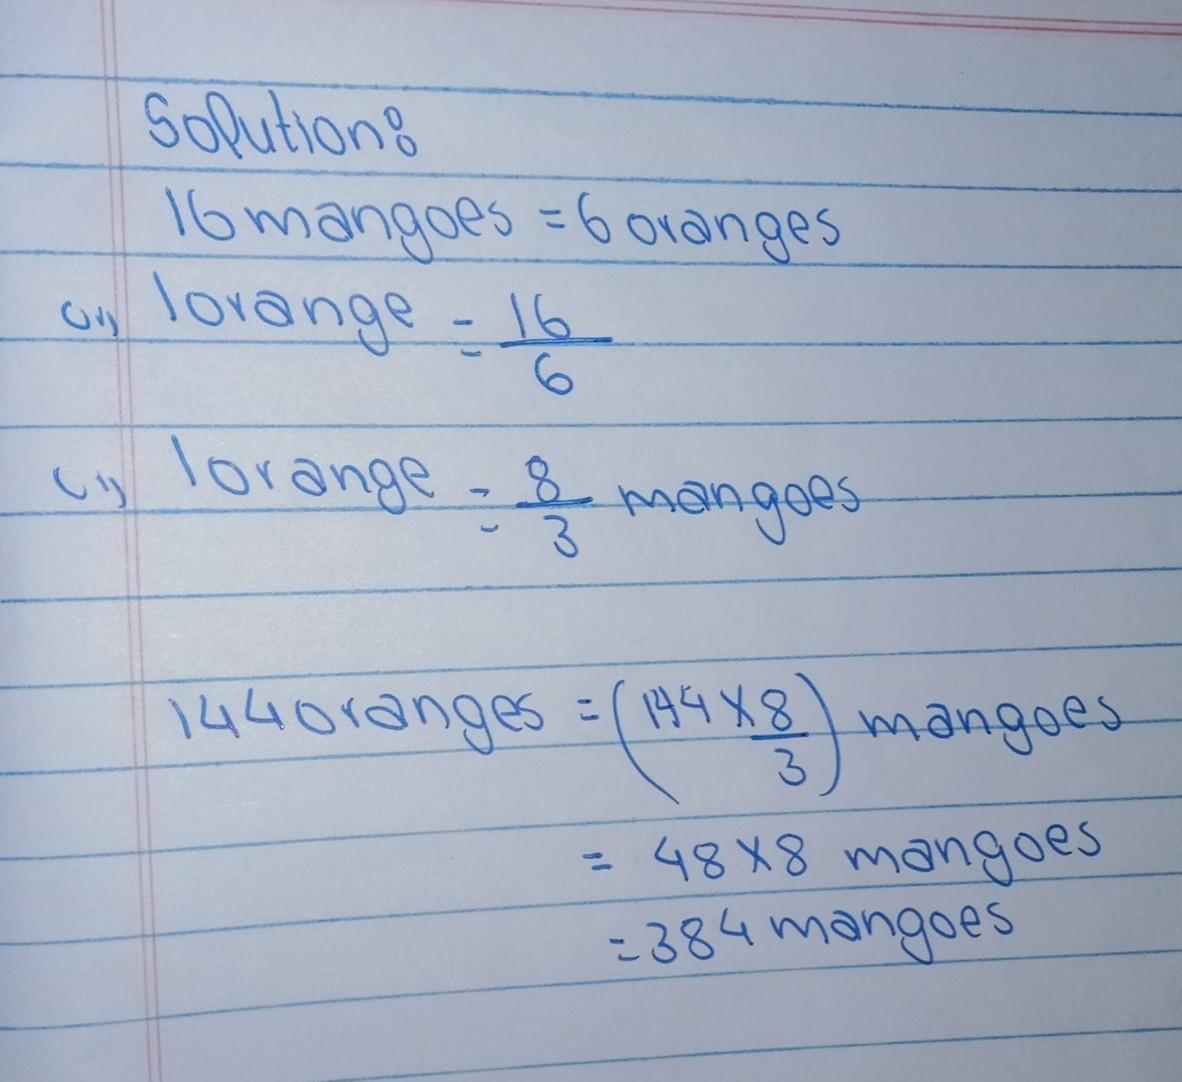 Solution:
16 mangoes = 6 oranges
or, 1 orange = 16/6
or, 1 orange = 8/3 mangoes
144 oranges = (144 × 8/3) mangoes
= 48 × 8 mangoes
= 384 mangoes